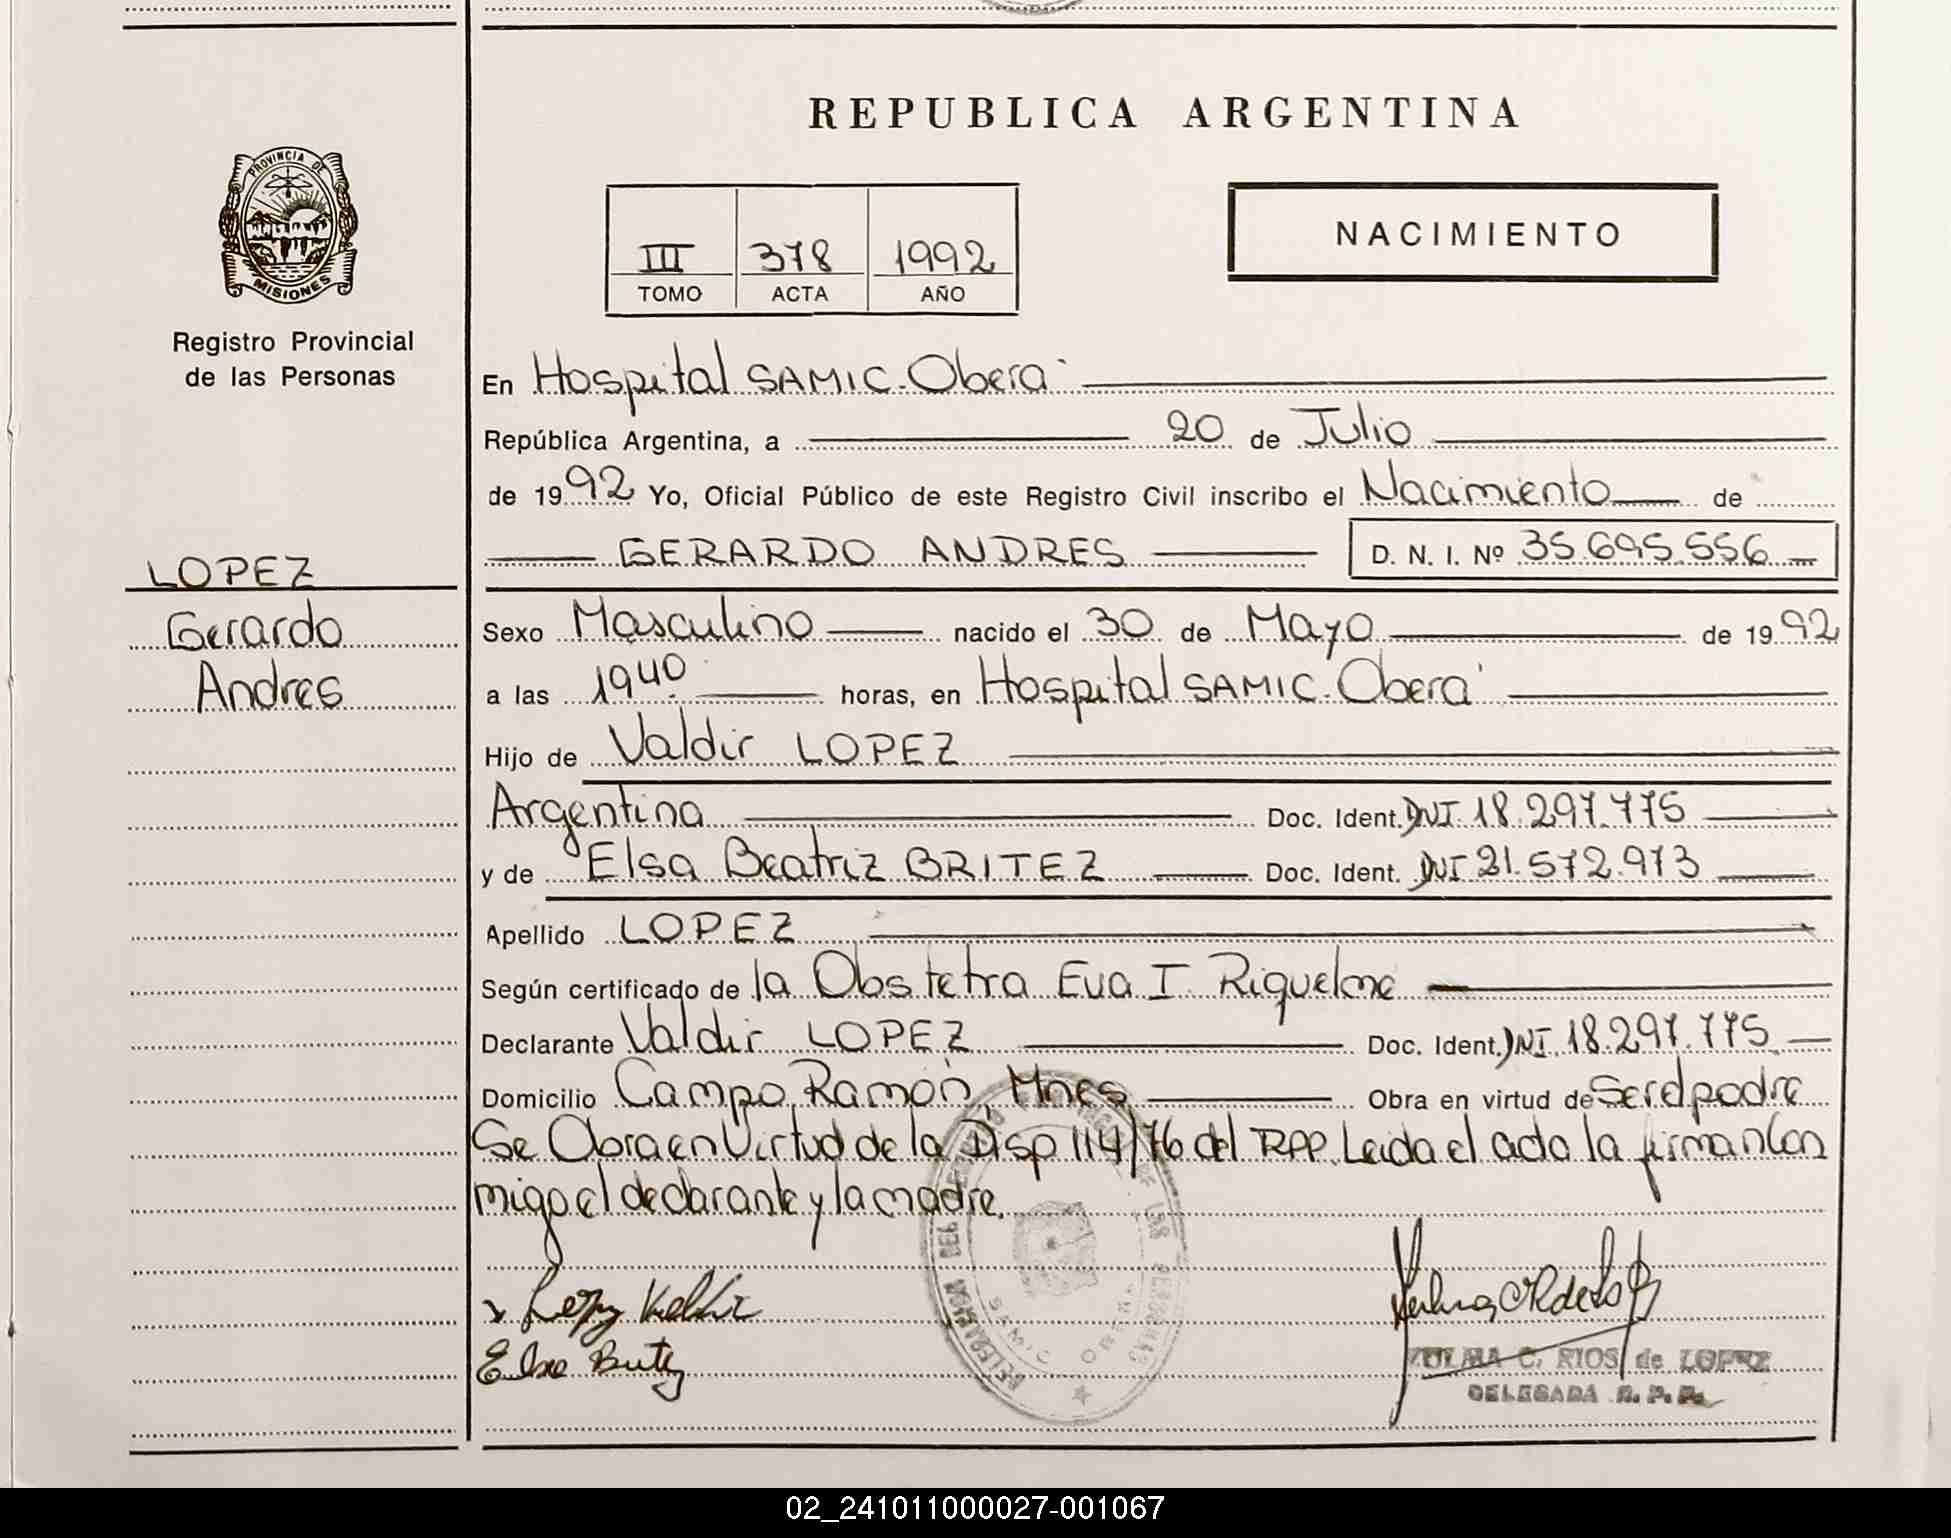 REPUBLICA ARGENTINA
PROVINCIA DE
MISIONES
Registro Provincial
de las Personas
III 378 1992
TOMO ACTA AÑO
NACIMIENTO
LOPEZ
Gerardo
Andres
En Hospital SAMIC. Oberá
República Argentina, a 20 de Julio
de 1992 Yo, Oficial Público de este Registro Civil inscribo el Nacimiento de
GERARDO ANDRES D. N. I. Nº 35.695.556
Sexo Masculino nacido el 30 de Mayo de 1992
a las 1940 horas, en Hospital SAMIC. Oberá
Hijo de Valdir LOPEZ
Argentina Doc. Ident. DNI 18.297.775
y de Elsa Beatriz BRITEZ Doc. Ident. DNI 21.572.973
Apellido LOPEZ
Según certificado de la Obstetra Eva I. Riquelme
Declarante Valdir LOPEZ Doc. Ident. DNI. 18.297.775
Domicilio Campo Ramón, Mnes Obra en virtud de Ser el padre
Se Obra en Virtud de la Disp 114/76 del RPP. Leida el acta la firman con
migo el declarante y la madre.
Lopez Valdir
Elsa Britez
DELEGACION DEL REGISTRO PROVINCIAL DE LAS PERSONAS
SAMIC OBERA
ZULMA C. RIOS de LOPEZ
DELEGADA R. P. P.
02_241011000027-001067